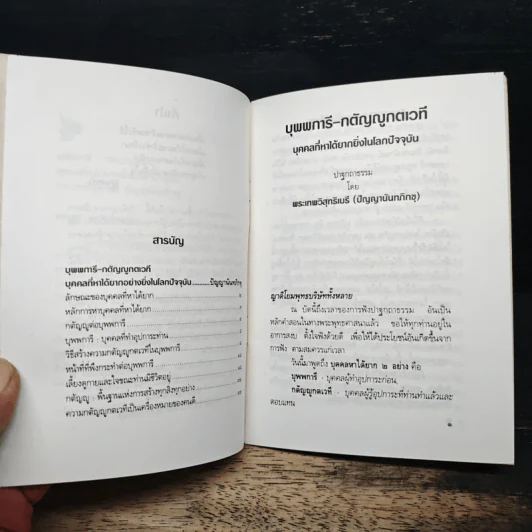 สารบัญ
บุพพการี-กตัญญูกตเวที
บุคคลที่หาได้ยากอย่างยิ่งในโลกปัจจุบัน..........ปัญญานันทภิกขุ
ลักษณะของบุคคลที่หาได้ยาก
หลักการหาบุคคลที่หาได้ยาก
กตัญญูต่อบุพพการี
บุพพการี - บุคคลที่ทำอุปการะท่าน
วิธีสร้างความกตัญญูกตเวทีในบุพพการี
หน้าที่ที่พึงกระทำต่อบุพพการี
เลี้ยงดูกายและใจขณะท่านมีชีวิตอยู่
กตัญญู : พื้นฐานแห่งการสร้างทุกสิ่งทุกอย่าง
ความกตัญญูกตเวทีเป็นเครื่องหมายของคนดี
บุพพการี-กตัญญูกตเวที
บุคคลที่หาได้ยากยิ่งในโลกปัจจุบัน
ปาฐกถาธรรม
โดย
พระเทพวิสุทธิเมธี (ปัญญานันทภิกขุ)
ญาติโยมพุทธบริษัททั้งหลาย
ณ บัดนี้ถึงเวลาของการฟังปาฐกถาธรรม อันเป็น
หลักคำสอนในทางพระพุทธศาสนาแล้ว ขอให้ทุกท่านอยู่ใน
อาการสงบ ตั้งใจฟังด้วยดี เพื่อให้ได้ประโยชน์อันเกิดขึ้นจาก
การฟัง ตามสมควรแก่เวลา
วันนี้มาพูดถึง บุคคลหาได้ยาก ๒ อย่าง คือ
บุพพการี - บุคคลผู้ทำอุปการะก่อน,
กตัญญูกตเวที - บุคคลผู้รู้อุปการะที่ท่านทำแล้วและ
ตอบแทน